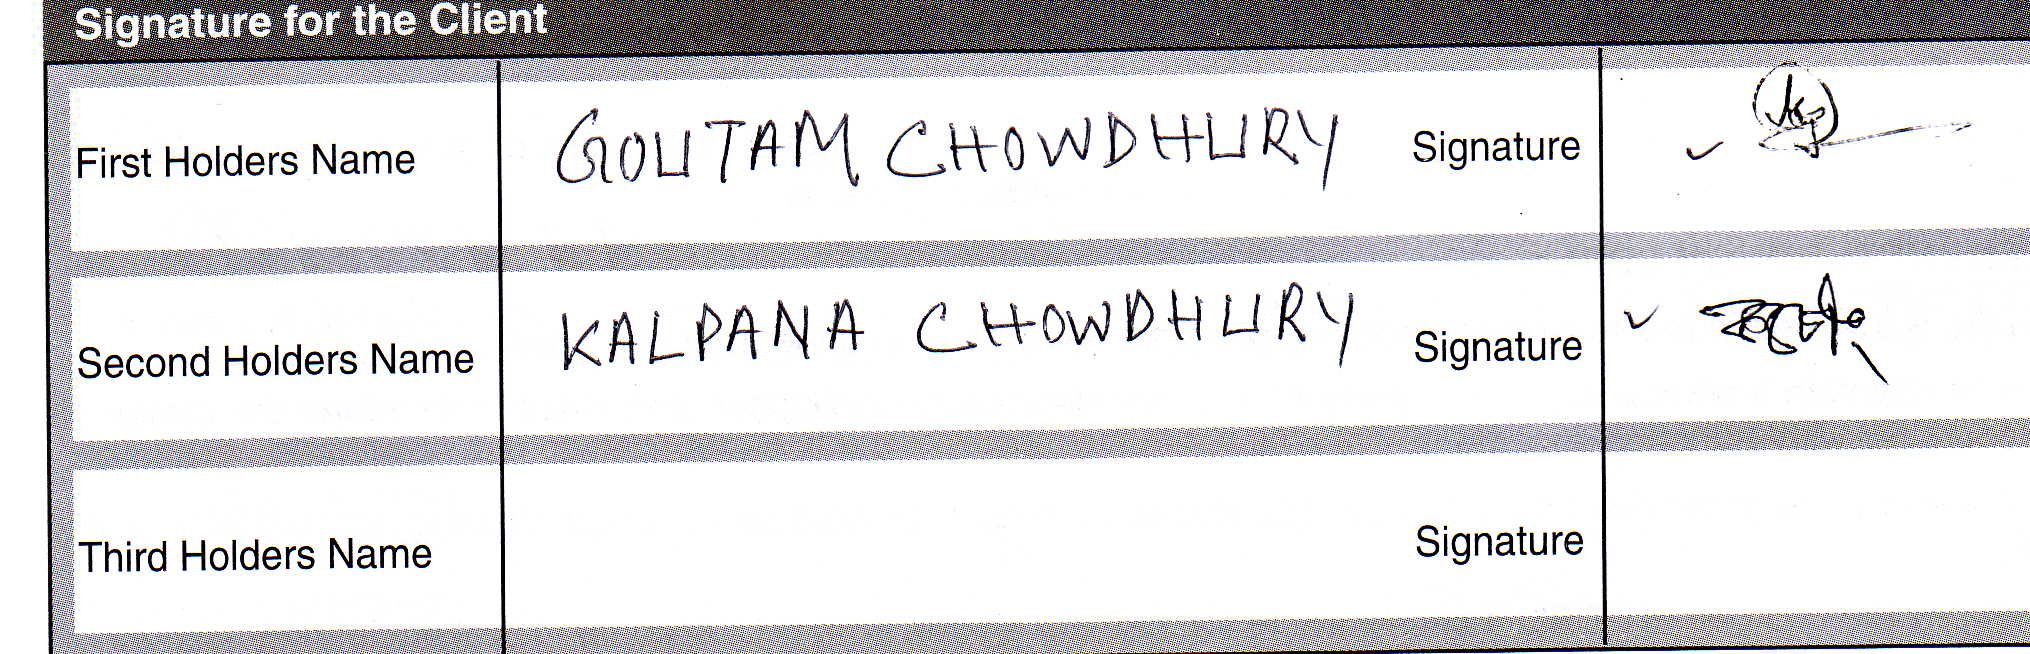 Signature for the Client
First Holders Name GOUTAM CHOWDHURY Signature
Second Holders Name KALPANA CHOWDHURY Signature
Third Holders Name Signature